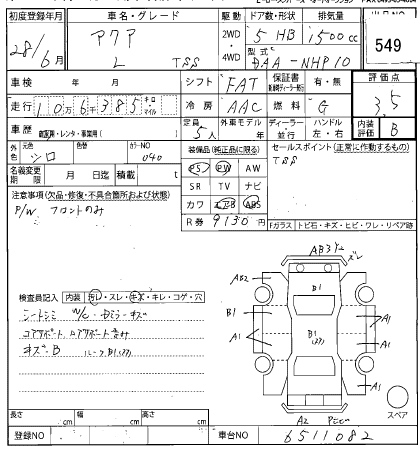 初度登録年月 車名・グレード 駆動 ドア数・形状 排気量
28/6月 アクア 2WD・4WD 5 HB 1500cc
L TSS 型式 DAA-NHP10
549
車検 年 月 シフト FAT 保証書 有・無 評価点
走行 10万6千385キロ・マイル 冷房 AAC 燃料 G 3.5
車歴 自家用・レンタ・事業用( ) 定員 5人 外車モデル ディーラー・並行 ハンドル 左・右 内装評価 B
外色 元色 シロ 色替 カラーNO 040
装備品(純正品に限る) セールスポイント(正常に作動するもの)
PS PW AW TSS
名義変更期限 月 日迄 積載 t SR TV ナビ
注意事項(欠品・修復・不具合箇所および状態) カワ エアB ABS
P/W フロントのみ R券 9130円
Fガラス トビ石・キズ・ヒビ・ワレ・リペア跡
AB3
ズレ
AB2
B1
B1
A1
A1
A1
B1
A1
A1
A2
スペア
検査員記入 内装 汚レ・スレ・キズ・キレ・コゲ・穴
シートシミ W/C・Dミラーキズ
コアサポート
キズ・B ルーフB1
長さ cm 幅 cm 高さ cm
登録NO 車台NO 6511082